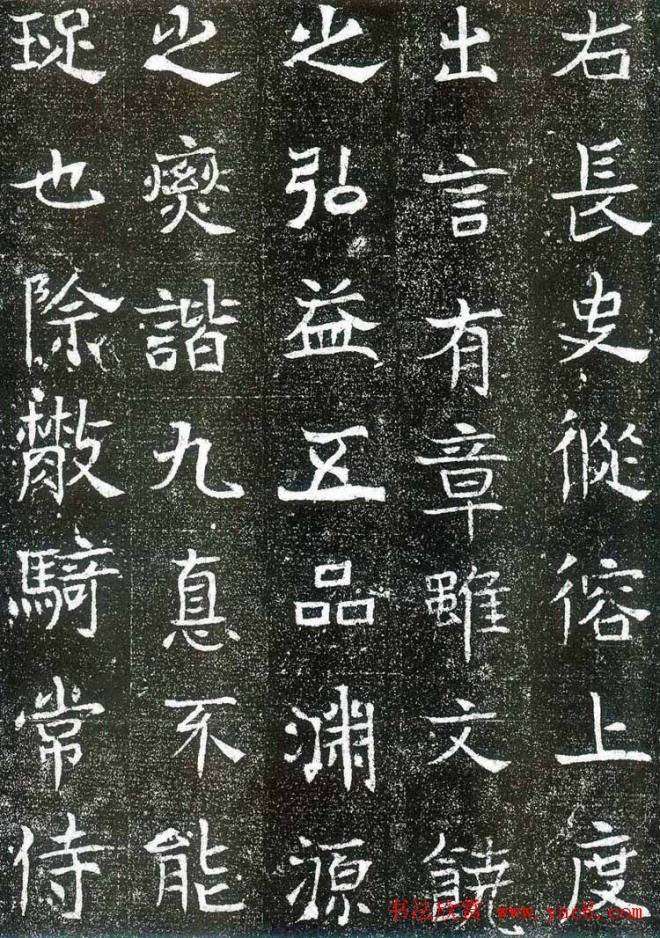 右長史從徖上度
出言有章雖文饒
之弘益五品淵源
之燮諧九惪不能
珿也除散騎常侍
书法欣赏 www.yac8.com